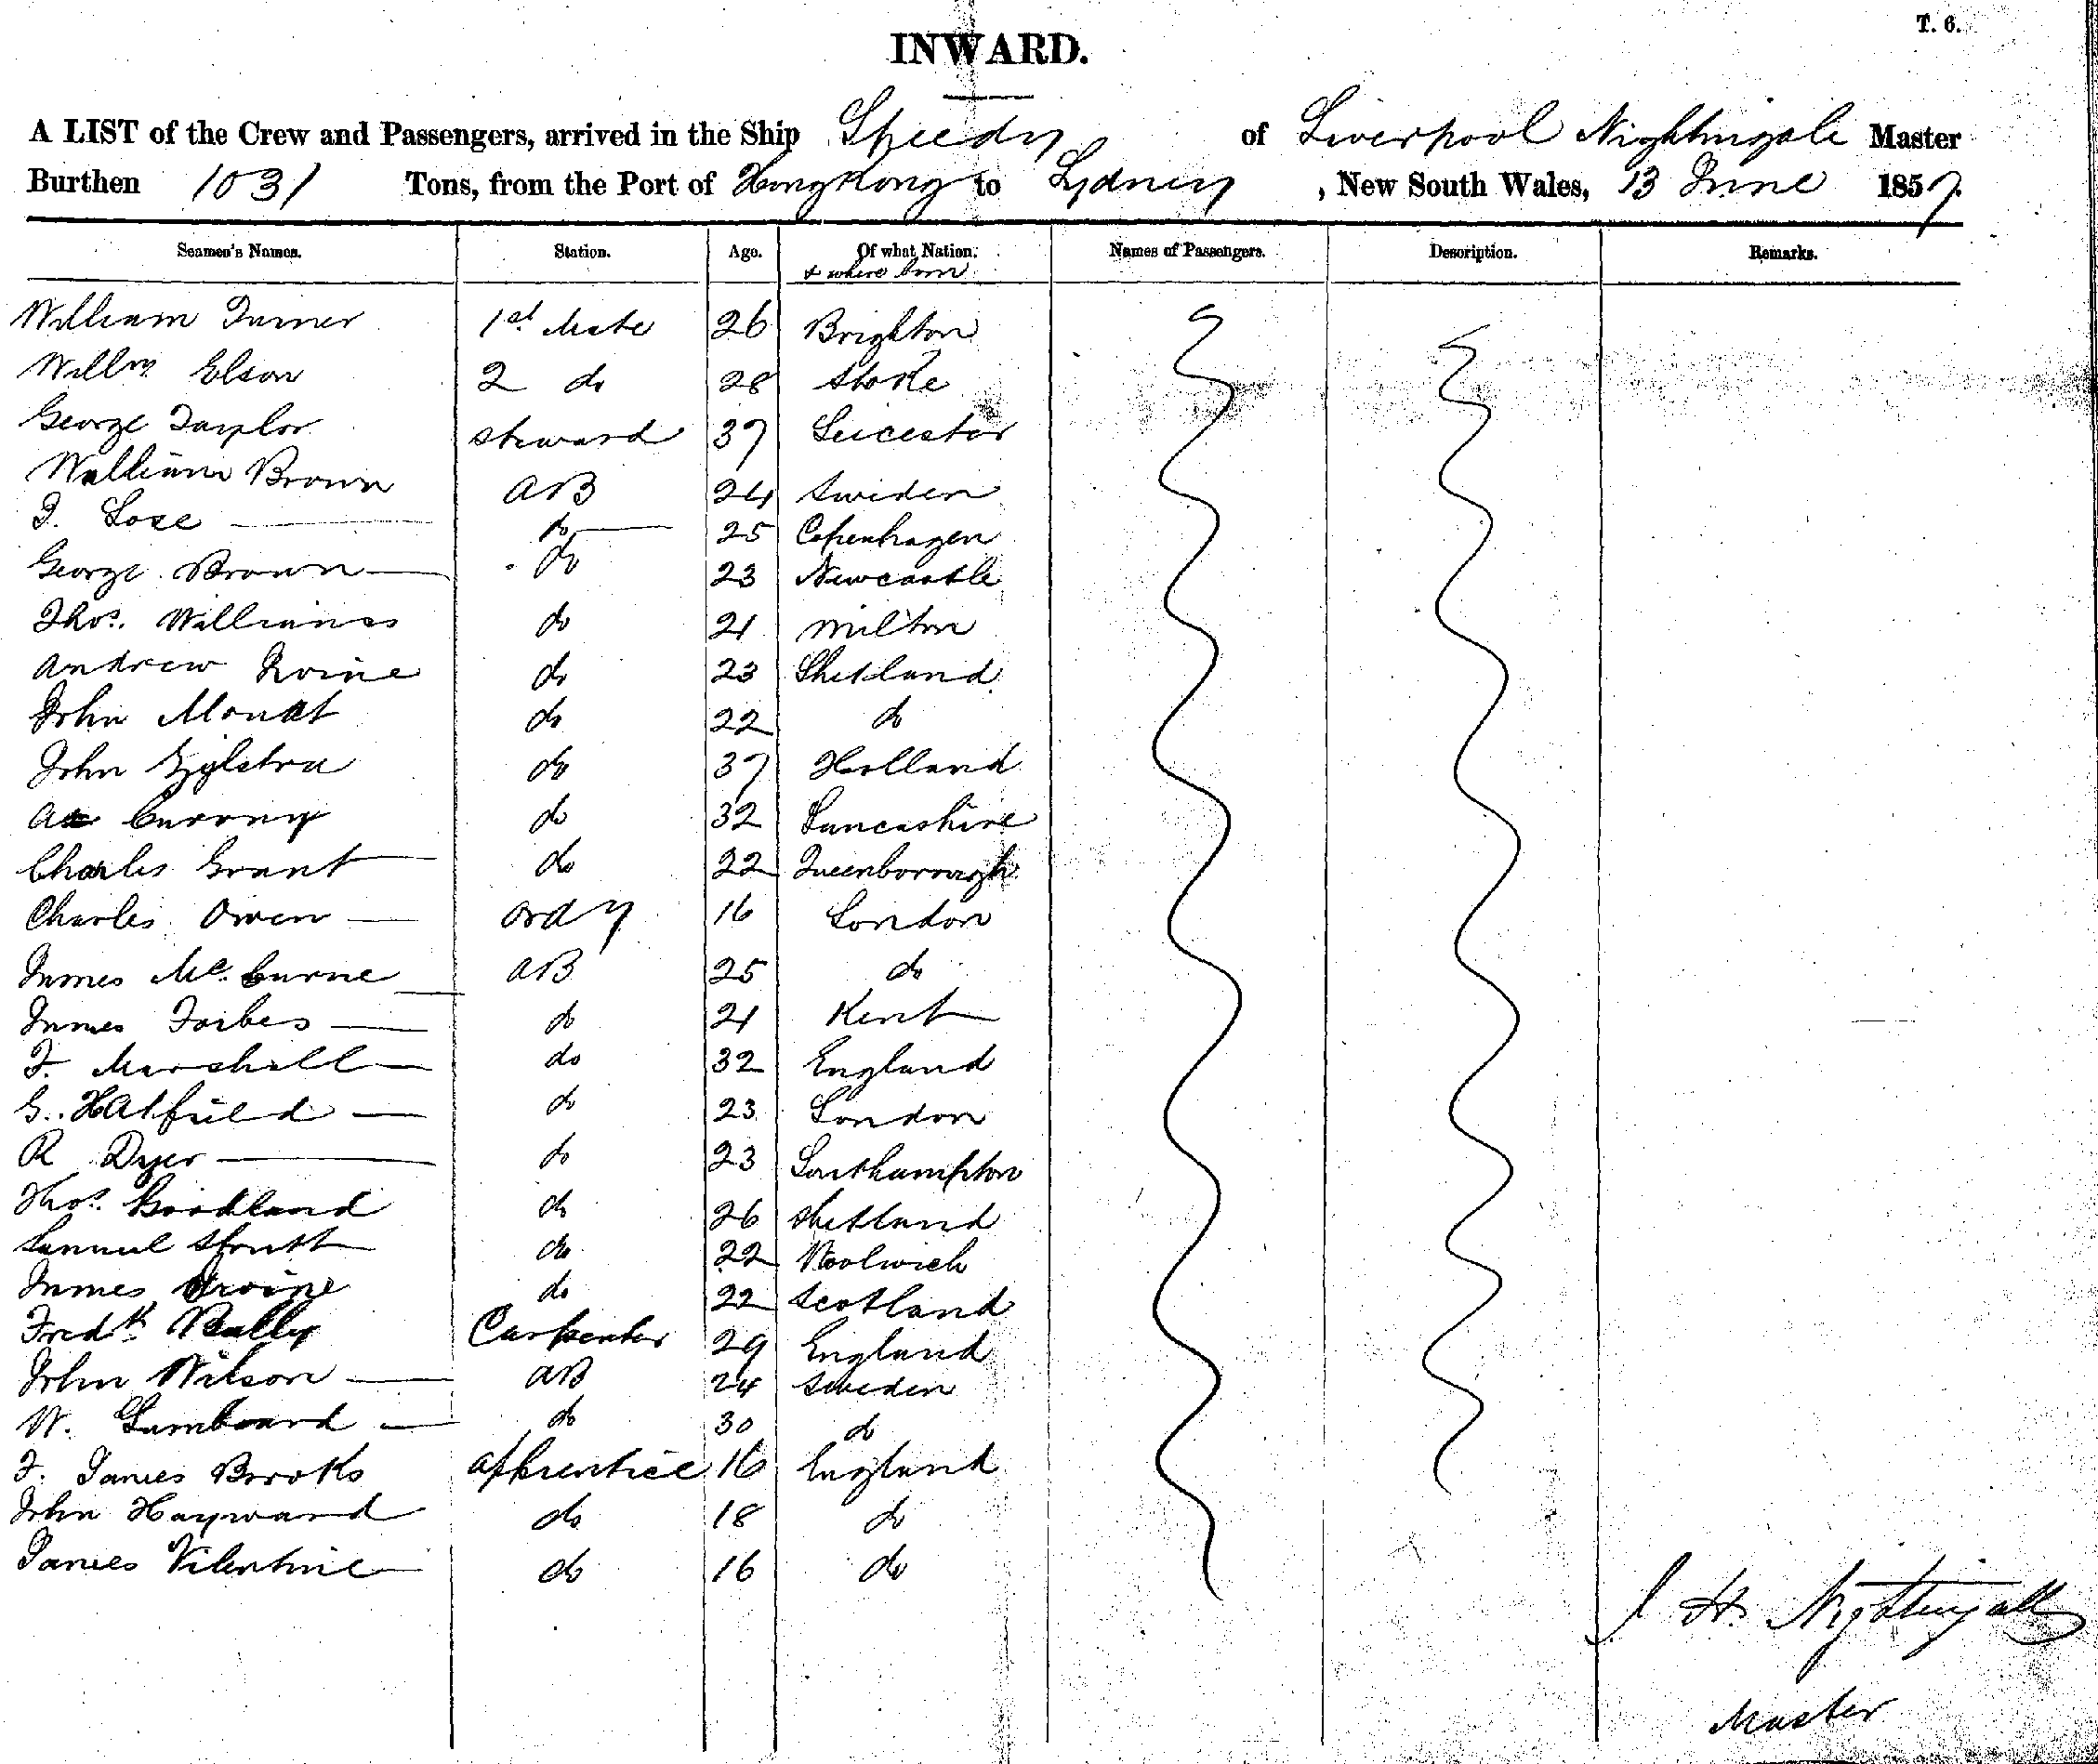 T. 6.
INWARD.
A LIST of the Crew and Passengers, arrived in the Ship Speedy of Liverpool Nightingale Master
Burthen 1031 Tons, from the Port of Hong Kong to Sydney, New South Wales, 13 June 1857
Seamen's Names. Station. Age. Of what Nation. Names of Passengers. Description. Remarks.
& where born
William Turner 1st Mate 26 Brighton
Willm Elson 2 do 28 Stoke
George Taylor Steward 37 Leicester
William Brown AB 24 Sweden
do 25 Copenhagen
George Brown do 23 Newcastle
Thos. Williams do 21 Milton
Andrew do 23 Shetland
John Mouat do 22 do
John Zylstra do 37 Holland
do 32 Lancashire
Charles Grant do 22 Queenborough
Charles Owen Ordy 16 London
James Mc. Curne AB 25 do
James Forbes do 21 Kent
F. Marshall do 32 England
G. Hatfield do 23 London
R Dyer do 23 Southampton
Thos. Goodland do 26 Shetland
Samuel Strutt do 22 Woolwich
James Irvine do 22 Scotland
Fredk Carpenter 29 England
John Wilson AB 24 Sweden
W. do 30 do
F. James Brooks apprentice 16 England
John Hayward do 18 do
James Vilentine do 16 do
J H. Nightingall
Master